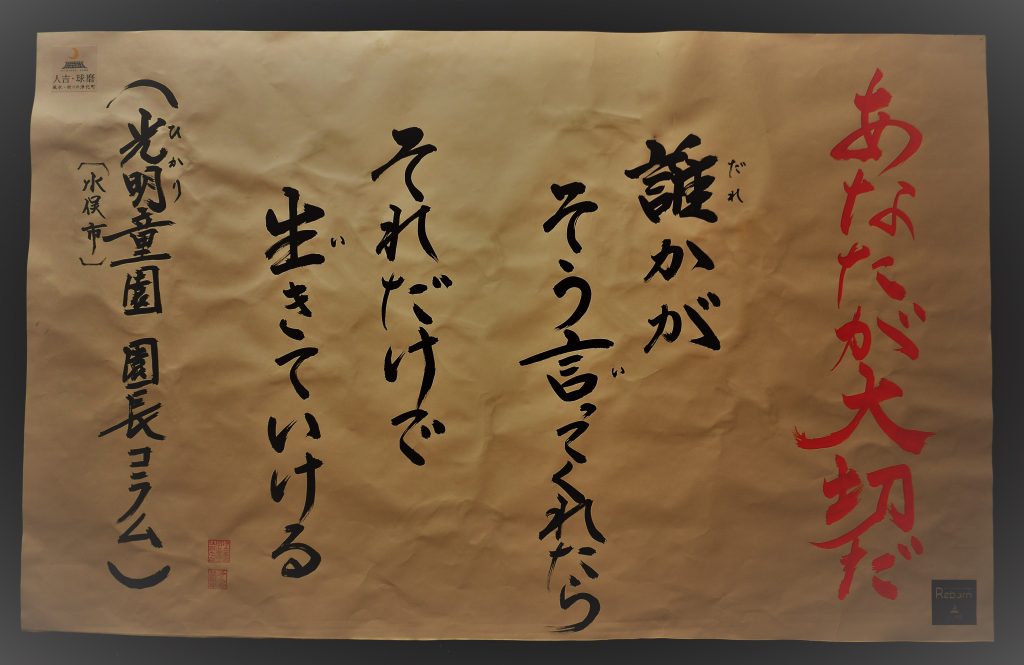 あなたが大切だ
誰かが
だれ
そう言ってくれたら
い
それだけで
生きていける
い
(光明童園 園長コラム)
ひかり
〔水俣市〕
人吉・球磨
Reborn